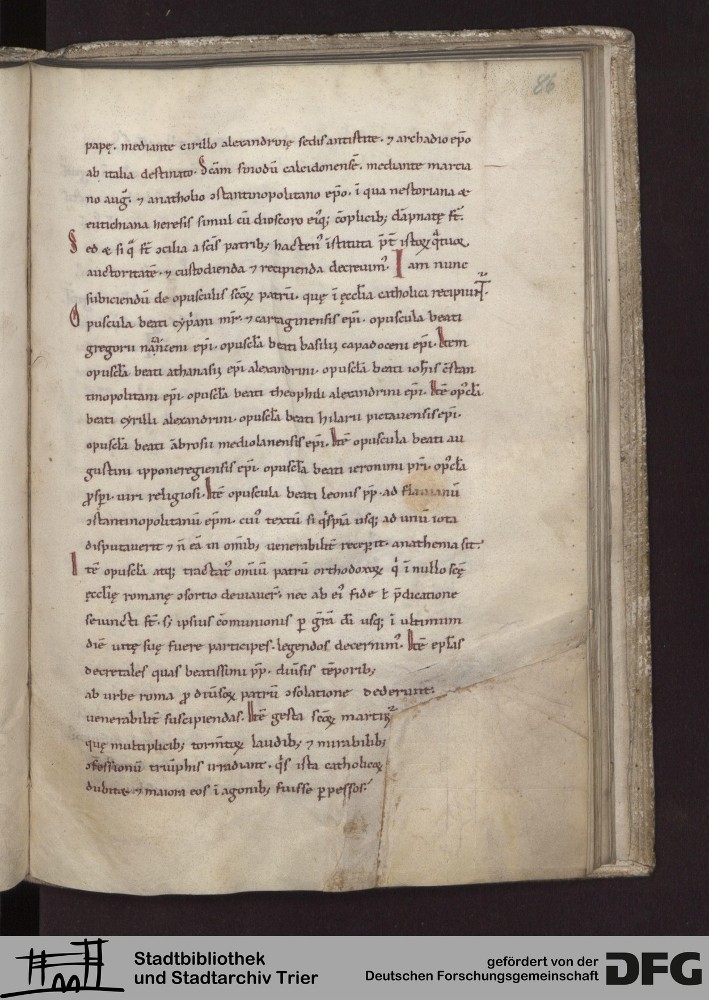 86
papę. mediante cirillo alexandrinę sedis antistite. ⁊ archadio ep̄o
ab italia destinato. Sc̄am sinodū calcidonensē. mediante marcia
no auḡ. ⁊ anatholio ↄstantinopolitano ep̄o. ī qua nestoriana &
eutichiana heresis simul cū dioscoro eiꝰq; cōplicib; dāpnatę s̄t.
Sed & si q̄ s̄t ↄcilia a sc̄is patrib; hactenꝰ īstituta p̄t istoꝝ q̓tuoꝝ
auctoritatē. ⁊ custodienda ⁊ recipienda decreuimꝰ. Iam nunc
subiciendū de opusculis sc̄oꝝ patrū. quę ī ęcclīa catholica recipiunt̄.
Opuscula beati cyp̓ani mr̄. ⁊ cartaginensis ep̄i. opuscula beati
gregorii nanzeni ep̄i. opuscl̄a beati basilii capadoceni ep̄i. Item
opuscl̄a beati athanasii ep̄i alexandrini. opuscl̄a beati ioh̄is c̄stan
tinopolitani ep̄i. opuscl̄a beati theophili alexandrini ep̄i. Itē opꝰcl̄a
beati cyrilli alexandrini. opuscl̄a beati hilarii pictauensis ep̄i.
opuscl̄a beati ābrosii mediolanensis ep̄i. Itē opuscula beati au
gustini ipponeregiensis ep̄i. opuscl̄a beati ieronimi pr̄i. opꝰcl̄a
ꝓsp̄i. uiri religiosi. Itē opuscula beati leonis pp̄. ad flauianū
ↄstantinopolitanū ep̄m. cuiꝰ textū si q̓spiā usq; ad unū iota
disputauerit ⁊ n̄ eā in om̄ib; uenerabilit̄ recep̄it. anathema sit.
Itē opuscl̄a atq; tractatꝰ om̄iū patrū orthodoxoꝝ q̓ ī nullo sc̄ę
ęcclīę romanę ↄsortio deuiauer̄. nec ab eiꝰ fide ł p̄dicatione
seiuncti s̄t. s; ipsius cōmunionis ꝑ gr̄ā dī usq; ī ultimum
diē uitę suę fuere participes. legendos decernimꝰ. Itē epl̄as
decretales quas beatissimi pp̄. diu̓sis tēporib;
ab urbe roma ꝓ diu̓soꝝ patrū ↄsolatione dederunt.
uenerabilit̄ suscipiendas. Itē gesta sc̄oꝝ martirū
quę multiplicib; torm̄toꝝ laudib; ⁊ mirabilib;
ↄfessionū triūphis irradiant. q̓s ista catholicoꝝ
dubitat ⁊ maiora eos ī agonib; fuisse ꝑpessos.
Stadtbibliothek
und Stadtarchiv Trier
gefördert von der
Deutschen Forschungsgemeinschaft
DFG